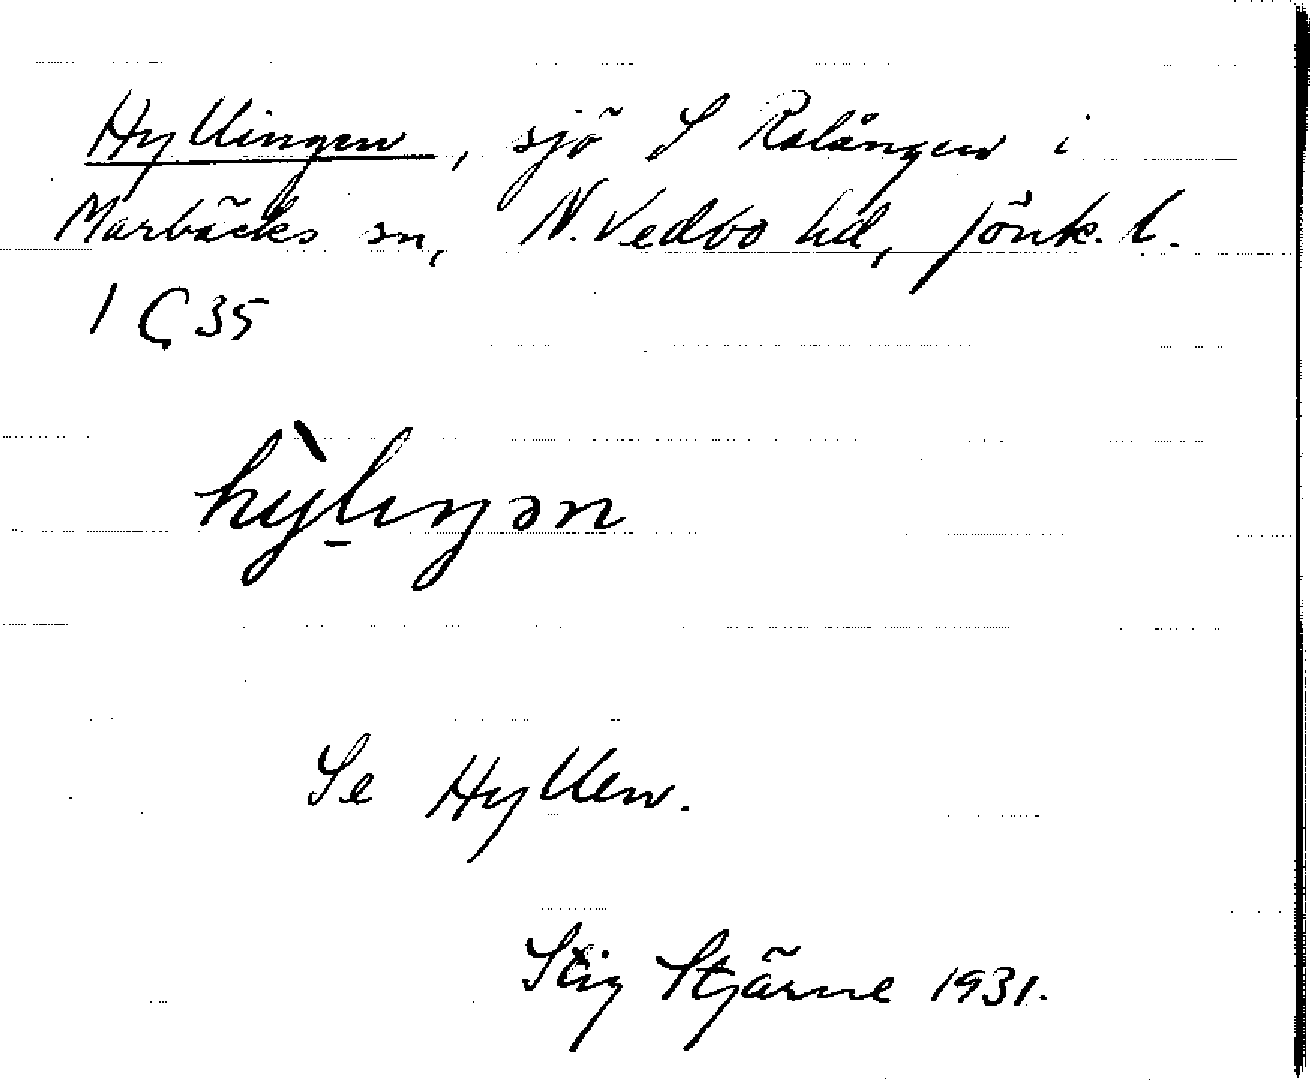 Hyllingen, sjö S Ralången i
Marbäcks sn, N. Vedbo hd, Jönk. l.
1 C 35
hỳlıŋən
Se Hyllen.
Stig Stjärne 1931.